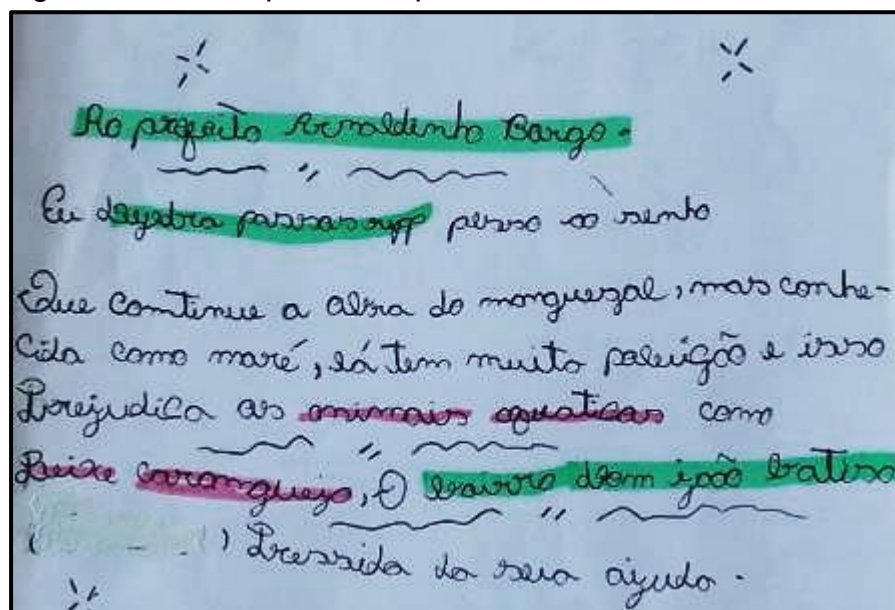 Ao prefeito Arnaldinho Borgo.
Eu passos pesso ao senho
Que continue a obra do manguezal, mas conhe-
Cida como maré, lá tem muito poluição e isso
Prejudica as animais aquaticas como
Peixe caranguejo, O bairro dom joão batisa
Pressida da sua ajuda.